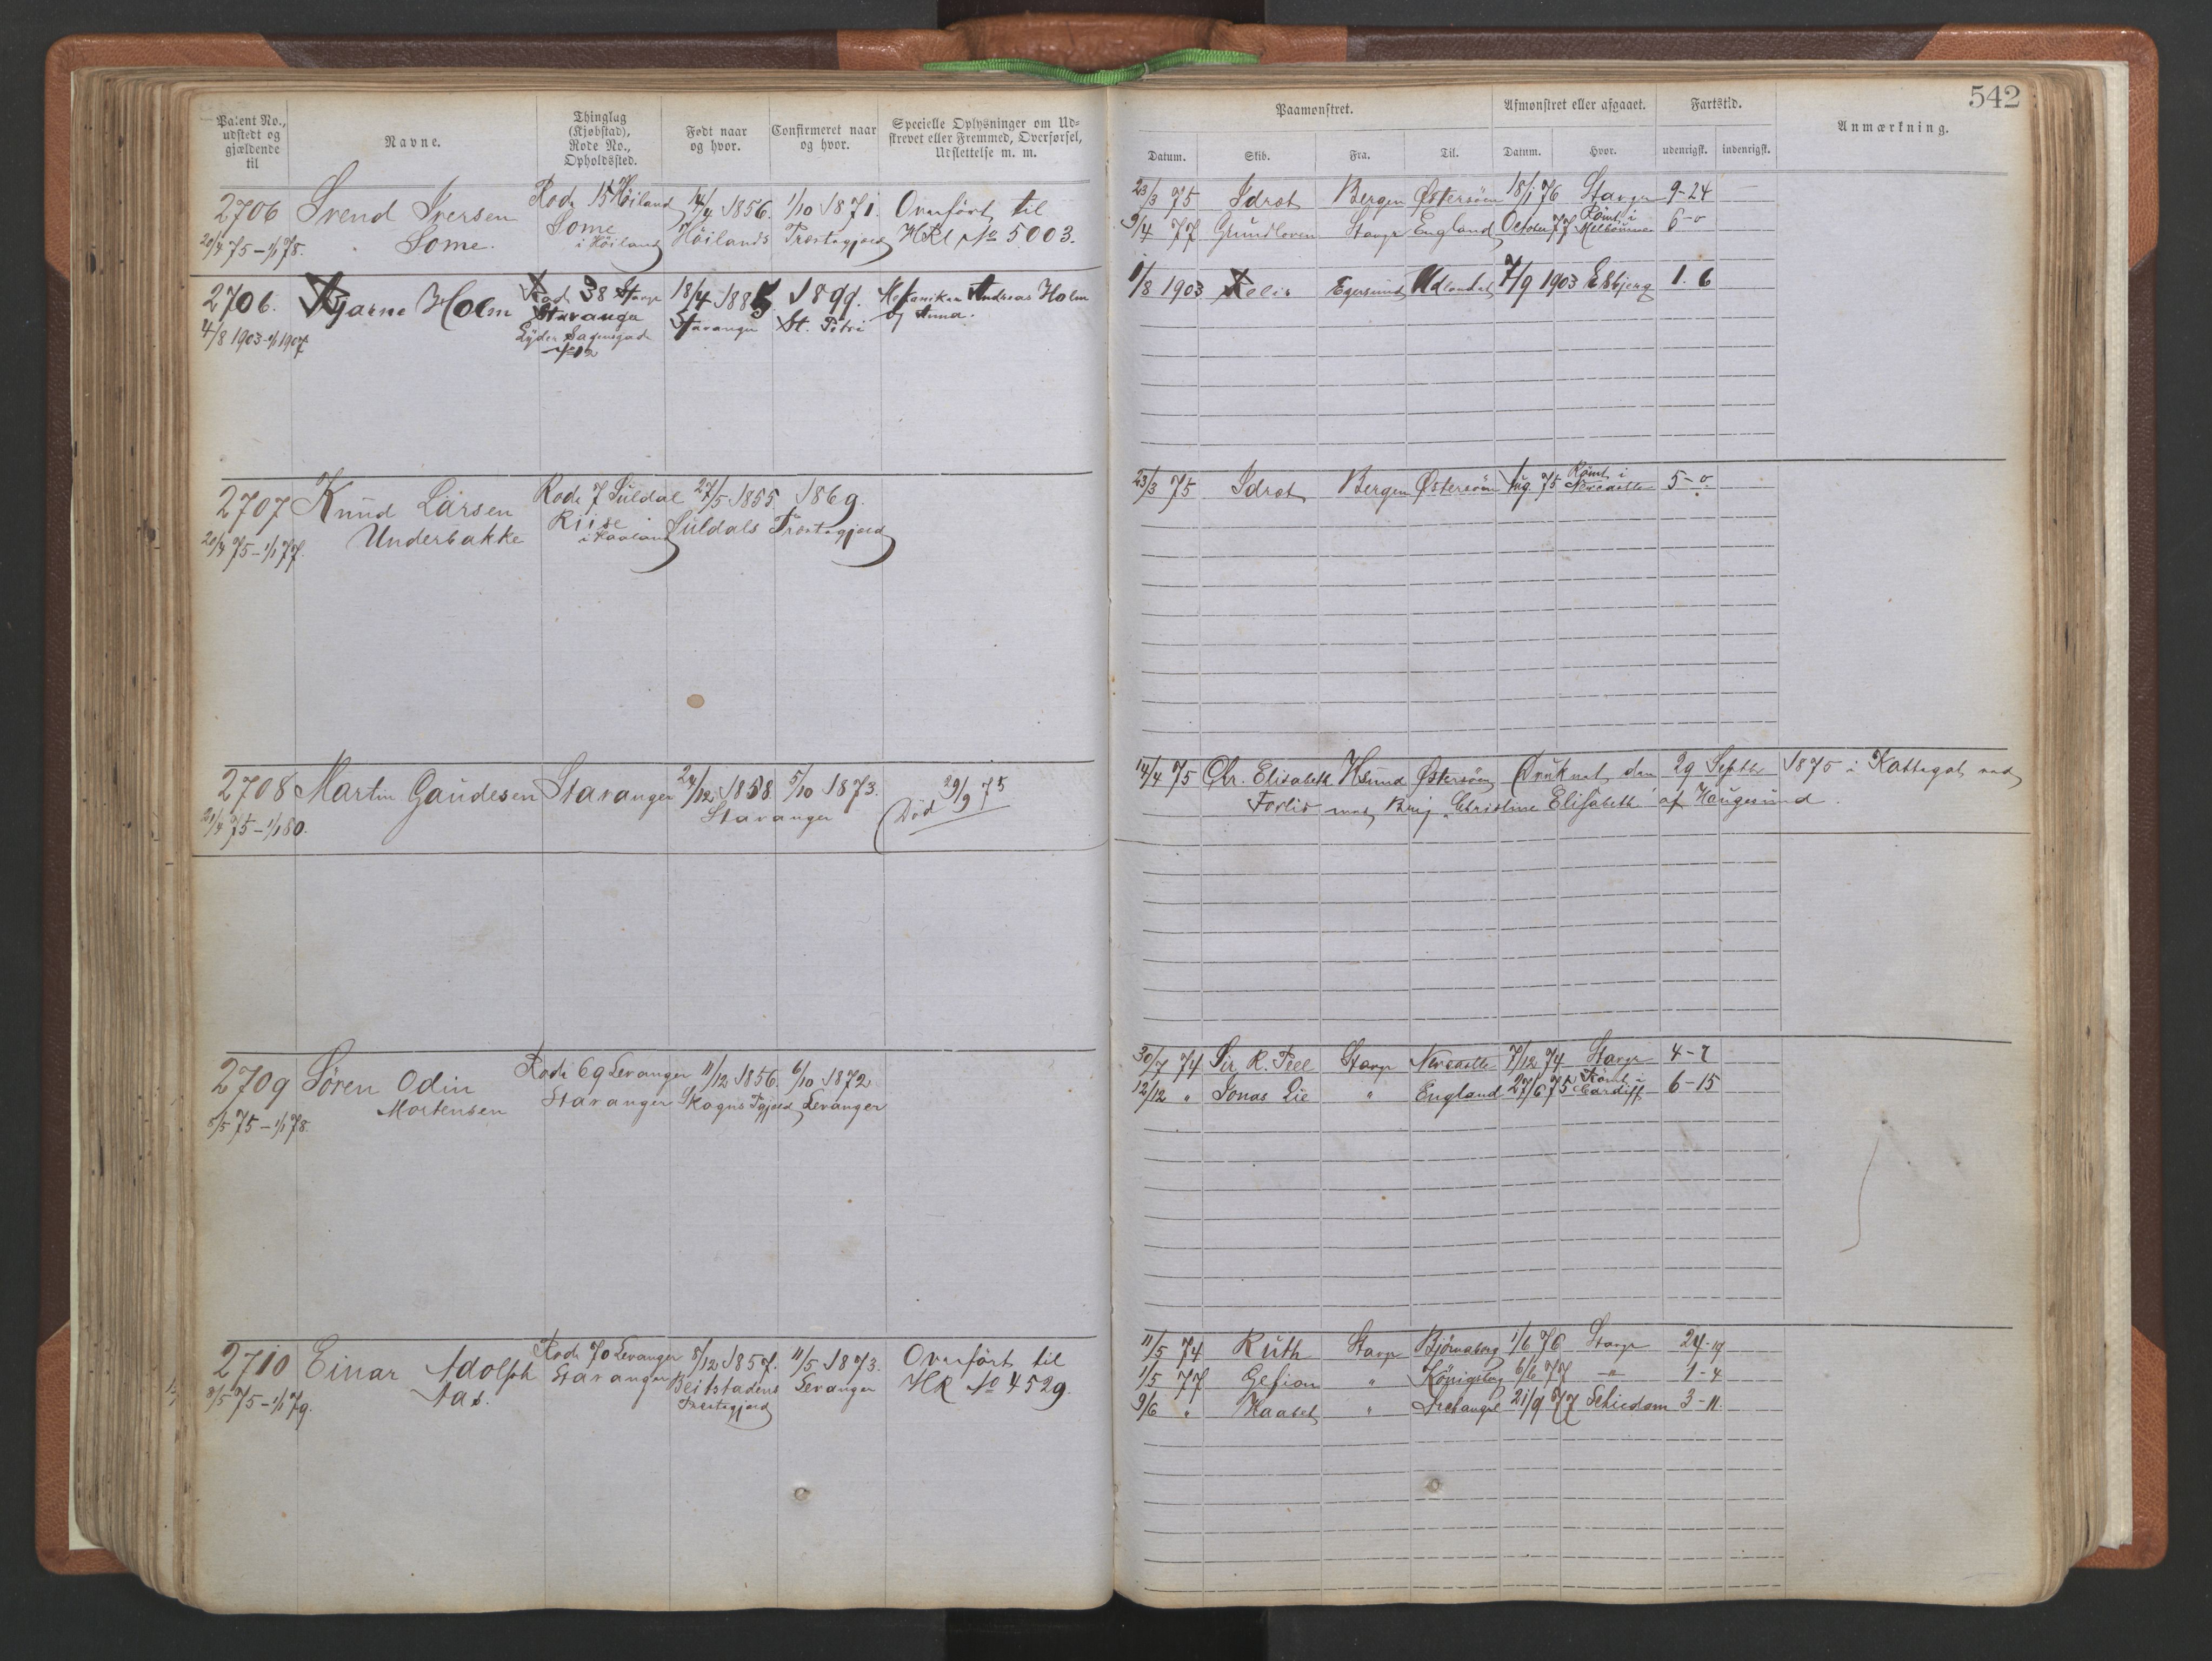 542
Patent No., udstedt og gjældende til
Navne.
Thinglag (Kjøbstad), Rode No., Opholdssted.
Født naar og hvor.
Confirmeret naar og hvor.
Specielle Oplysninger om Udstrevet eller Fremmed, Overførsel, Udslettelse m. m.
Paamønstret.
Afmønstret eller afgaaet.
Fartstid.
Anmærkning.
Datum. Skib. Fra. Til. Datum. Hvor. udenrigst. indenrigst.
2706 Svend Iversen Rode 15 Höiland 14/4 1856. 1/10 1871. Overfört til
20/4 75 – 1/1 78. Some. Some i Höiland Höilands Præstegjæld HRl No 5003.
23/3 75 Idræt Bergen Østersöen 18/1 76 Stavgr 9-24
9/4 77 Grundloven Stavgr England October 77 Römt i Melbourne 6-0
2706. Bjarne Holm Rode 38 Stavgr 18/4 1885 1899. Mekaniker Andreas Holm
4/8 1903 - 1/1 1907 Stavanger Stavanger St. Petri og Anna.
1/8 1903 Egersund Udlandet 7/9 1903 Esbjerg 1. 6
2707 Knud Larsen Rode 7 Suldal 27/5 1855 1869.
20/4 75 – 1/1 77. Underbakke Riise i Haaland Suldals Præstegjæld
23/3 75 Idræt Bergen Østersöen Aug. 75 Römt i Newcastle 5-0
2708 Martin Gaudesen Stavanger 24/12 1858 5/10 1873. 29/9 75
21/4 75 – 1/1 80. Stavanger Död
14/4 75 Chr. Elisabeth Hsund Østersöen Druknet den 29 Septbr 1875 i Kattegat ved
Forlis med Brig "Christine Elisabeth" af Haugesund.
2709 Sören Odin Rode 69 Levanger 11/12 1856. 6/10 1872
8/5 75 – 1/1 78. Mortensen Stavanger Skogns Pgjæld Levanger
30/7 74 Sir R. Peel Stavgr Newcastle 7/12 74 Stavgr 4-7
12/12 " Jonas Lie " England 27/6 75 Römt i Cardiff 6-15
2710 Einar Adolph Rode 70 Levanger 8/12 1857. 11/5 1873. Overfört til
8/5 75 – 1/1 79. Aas. Stavanger Beitstadens Præstegjæld Levanger HR No 4529.
11/5 74 Ruth Stavgr Björneborg 1/6 76 Stavgr 24-19
1/5 77 Gefion " Königsbg 6/6 77 " 1-4
9/6 " Haabet " Archangel 21/9 77 Schiedam 3-11.